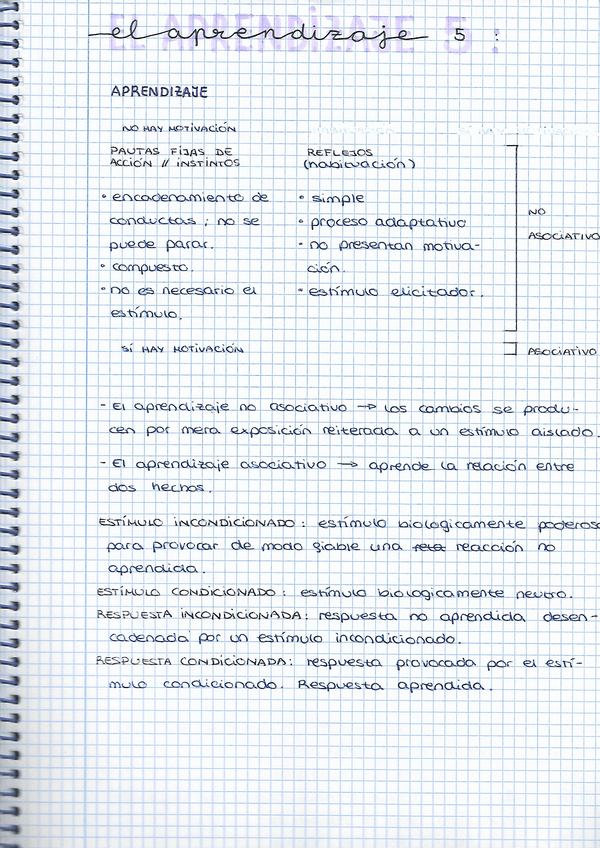 el aprendizaje 5 :
EL APRENDIZAJE 5 :
APRENDIZAJE
NO HAY MOTIVACIÓN
PAUTAS FIJAS DE
ACCIÓN // INSTINTOS
• encadenamiento de
conductas ; no se
puede parar.
• compuesto.
• no es necesario el
estímulo.
REFLEJOS
(habituación)
• simple
• proceso adaptativo
• no presentan motiva-
ción.
• estímulo elicitador.
NO
ASOCIATIVO
SÍ HAY MOTIVACIÓN
ASOCIATIVO
- El aprendizaje no asociativo → los cambios se produ-
cen por mera exposición reiterada a un estímulo aislado.
- El aprendizaje asociativo → aprende la relación entre
dos hechos.
ESTÍMULO INCONDICIONADO : estímulo biologicamente poderoso
para provocar de modo fiable una reacción no
aprendida.
ESTÍMULO CONDICIONADO : estímulo biologicamente neutro.
RESPUESTA INCONDICIONADA: respuesta no aprendida desen-
cadenada por un estímulo incondicionado.
RESPUESTA CONDICIONADA: respuesta provocada por el estí-
mulo condicionado. Respuesta aprendida.